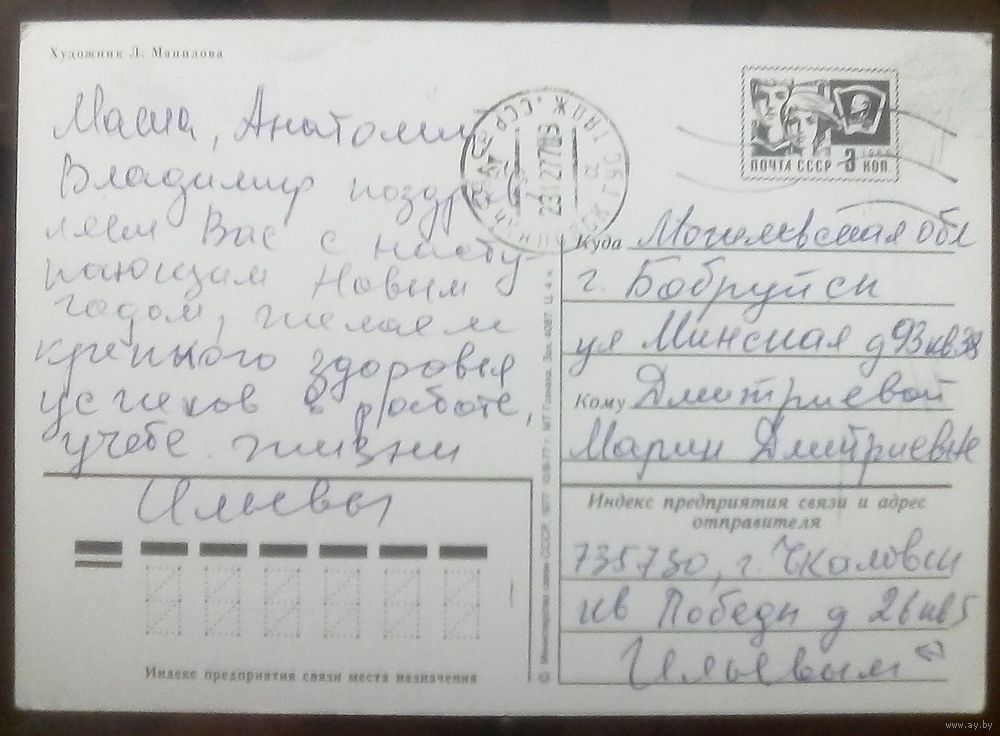 Художник Л. Манилова
Маша, Анатолий
Владимир поздрав
ляем Вас с насту-
пающим Новым
годом, желаем
крепкого здоровья
успехов в работе,
учебе жизни
Ильевы
Индекс предприятия связи места назначения
ПОЧТА СССР 3 КОП.
Куда Могилевская обл
г. Бобруйск
ул Минская д 93 кв 38
Кому Дмитриевой
Марии Дмитриевне
Индекс предприятия связи и адрес
отправителя
735730, г. Чкаловск
кв Победы д 26 кв 5
Ильевым
© Министерство связи СССР. 1977
www.ay.by